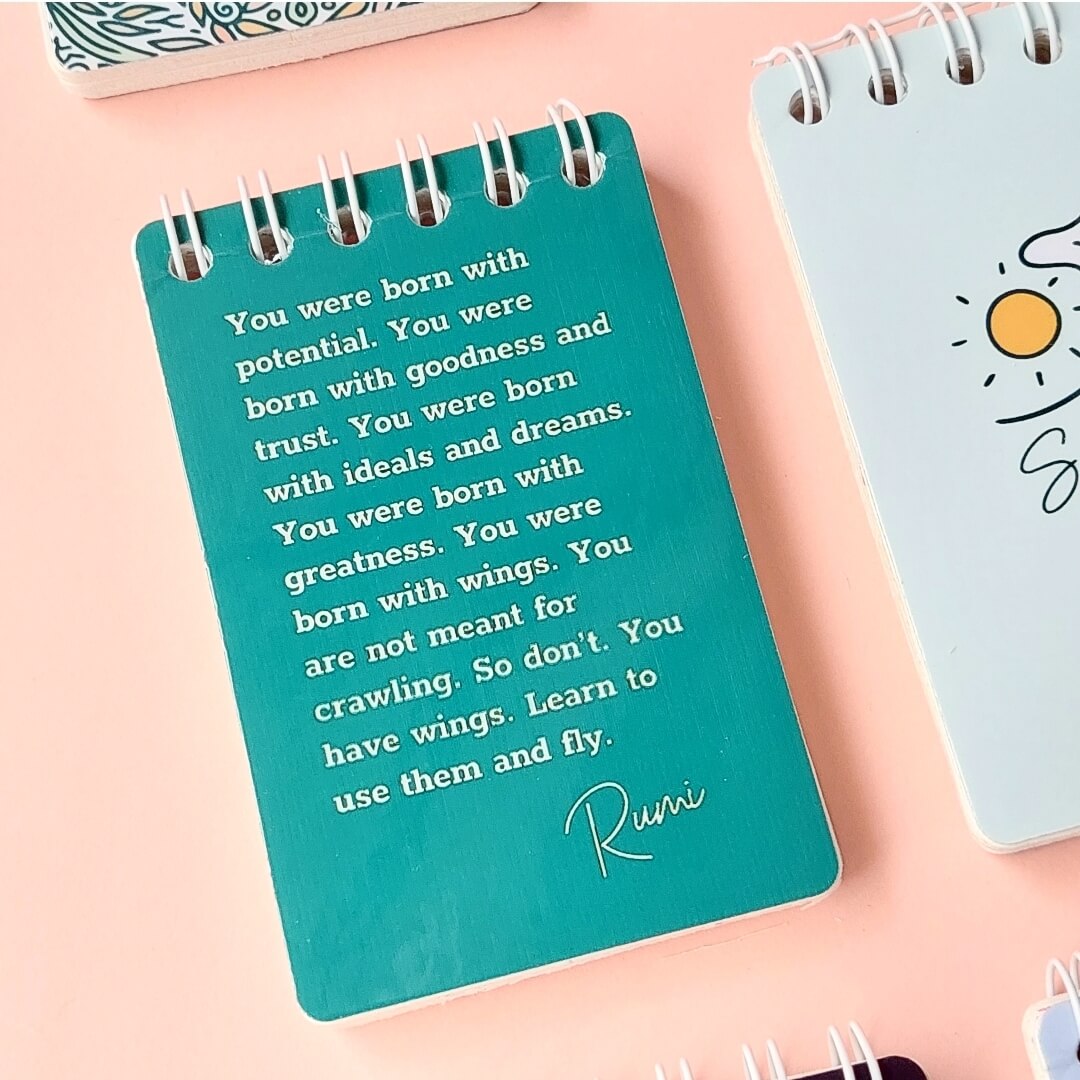 You were born with
potential. You were
born with goodness and
trust. You were born
with ideals and dreams.
You were born with
greatness. You were
born with wings. You
are not meant for
crawling. So don't. You
have wings. Learn to
use them and fly.
Rumi
S